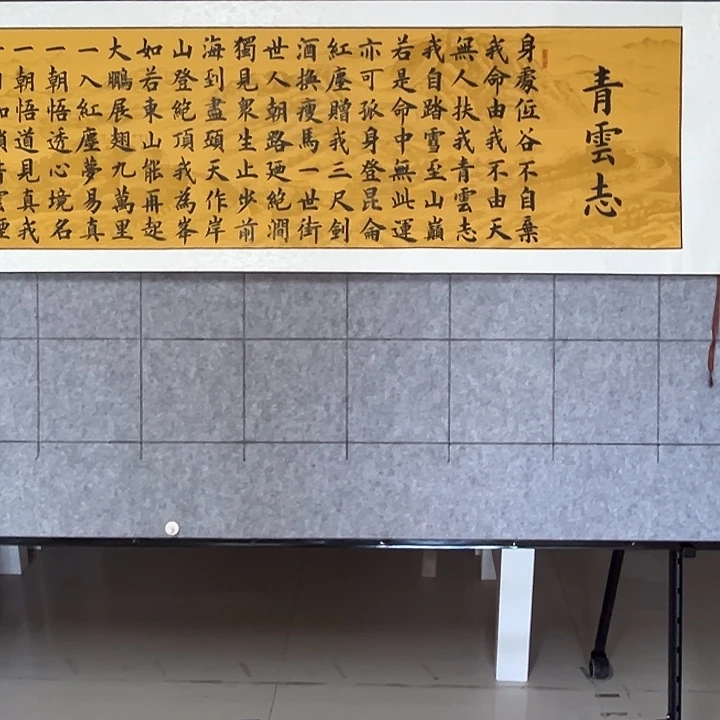 青雲志
身處低谷不自棄
我命由我不由天
無人扶我青雲志
我自踏雪至山巔
若是命中無此運
亦可孤身登昆侖
紅塵贈我三尺劍
酒換瘦馬一世街
世人朝路廻絕澗
獨見眾生止步前
海到盡頭天作岸
山登絕頂我為峯
如若東山能再起
大鵬展翅九萬里
一入紅塵夢易真
一朝悟透心境名
一朝悟道見真我